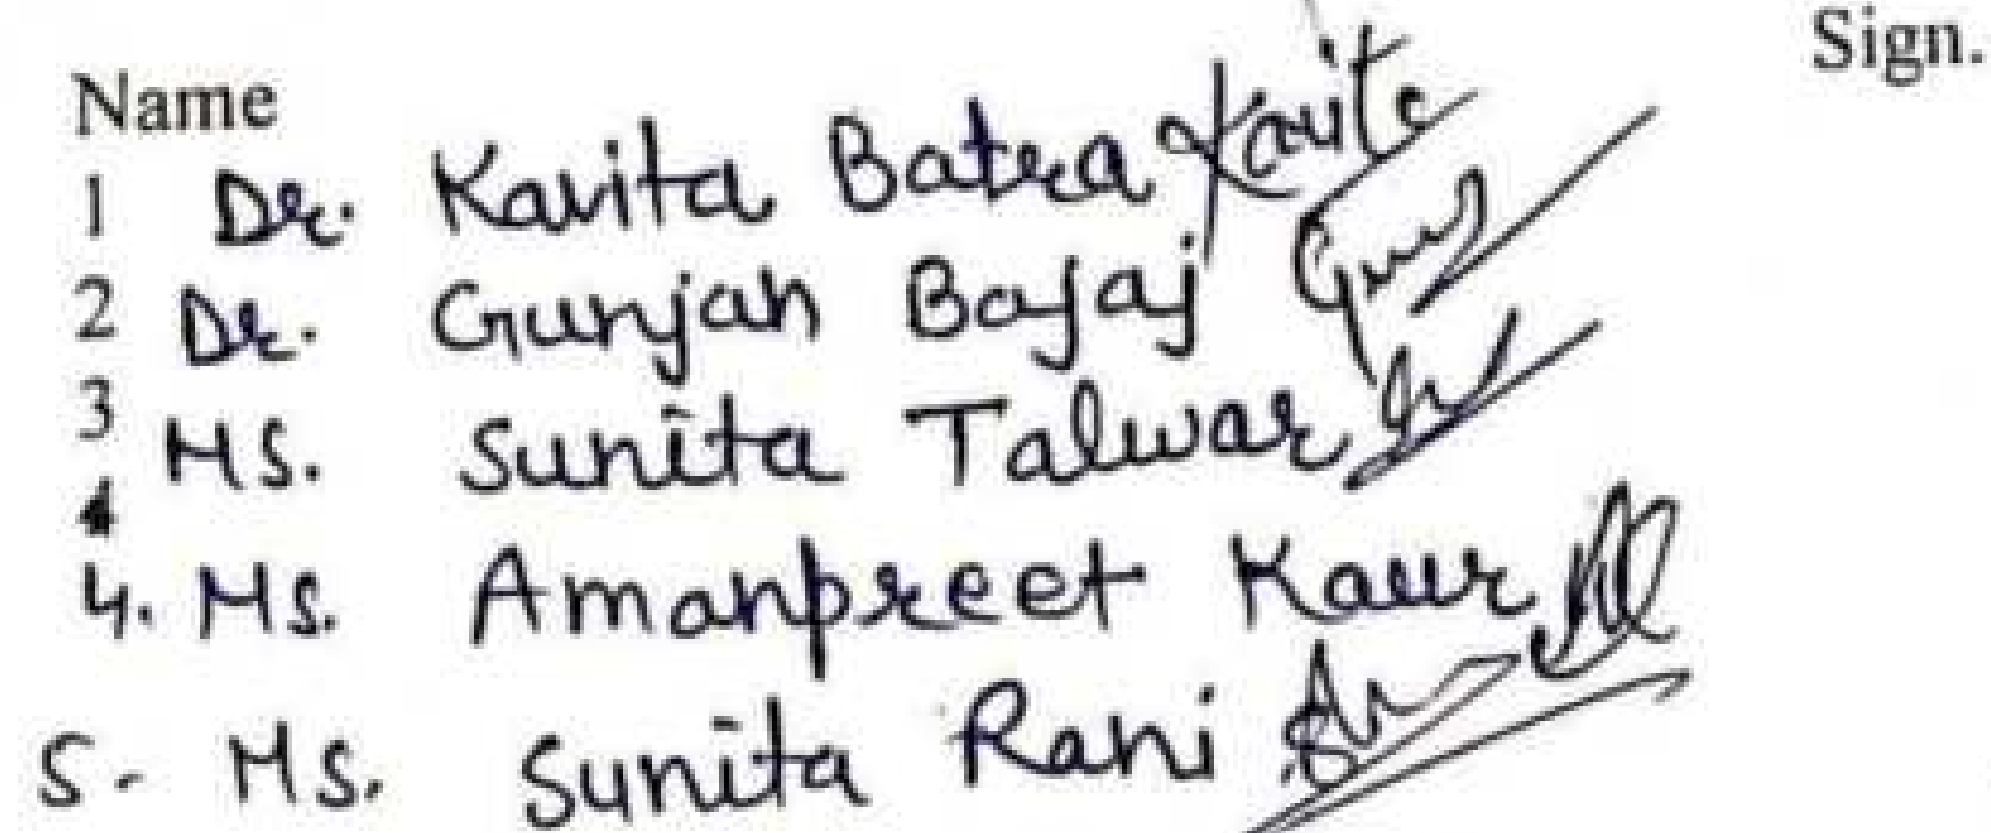 Sign.
Name
1 Dr. Kavita Batra Kavita
2 Dr. Gunjan Bajaj
3 Ms. Sunita Talwar
4. Ms. Amanpreet Kaur
5- Ms. Sunita Rani